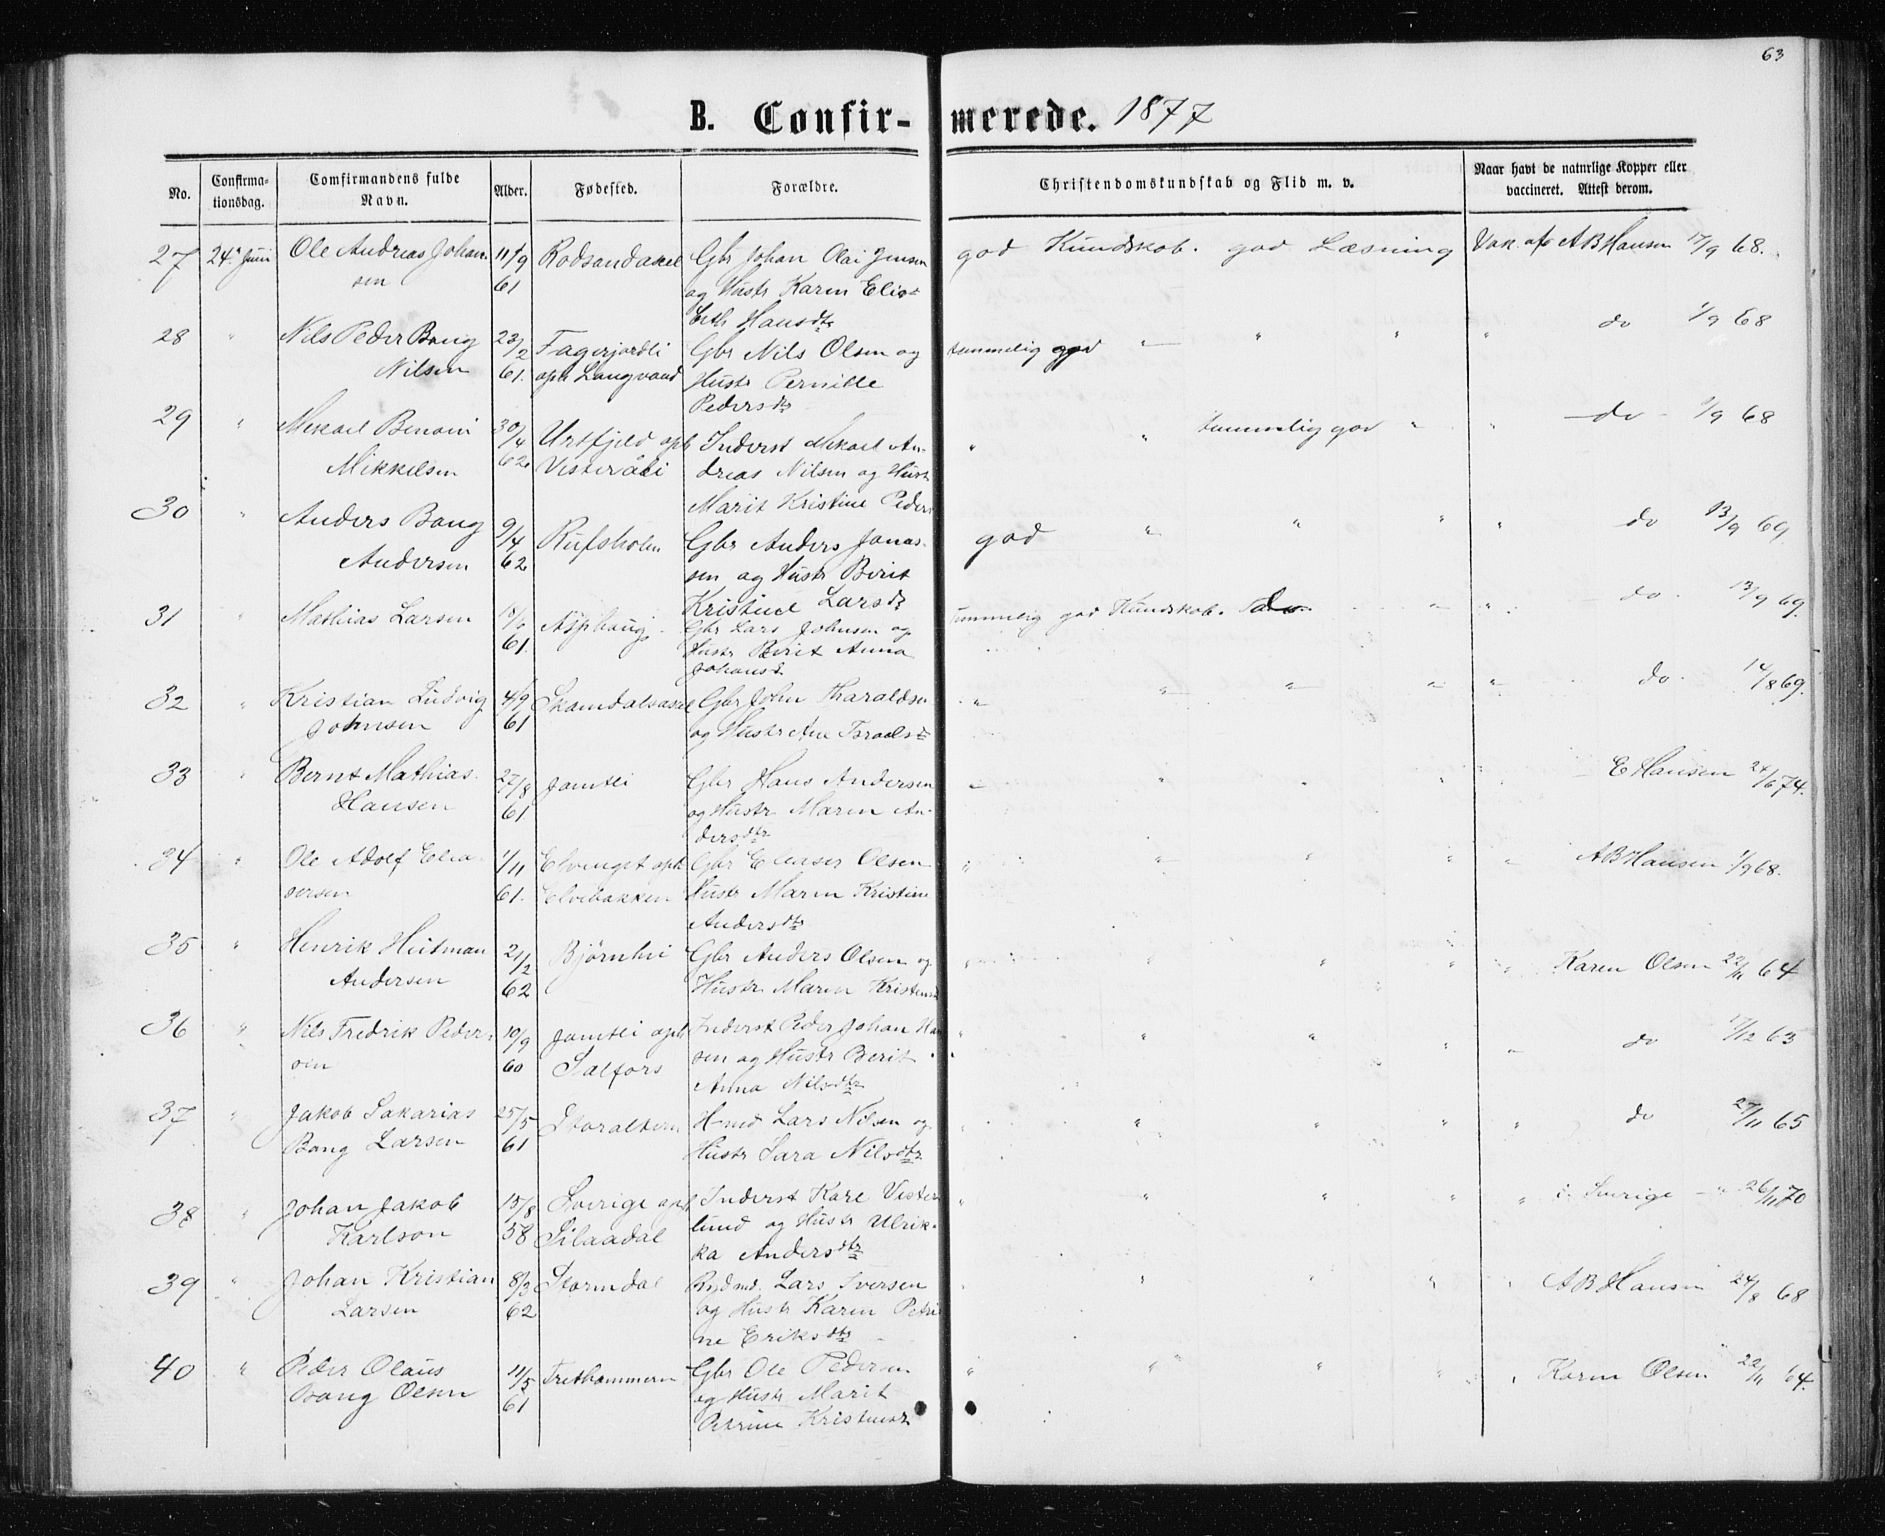 63
B. Confir- merede. 1877
No. Confirma-tionsdag. Comfirmandens fulde Navn. Alder. Fødested. Forældre. Christendomskundskab og Flid m. v. Naar havt de naturlige Kopper eller vaccineret. Attest derom.
27 24. Juni Ole Andreas Johan- 11/9 Rodsandaasel Gbr Johan Olai Jensen god Kundskab. god Læsning Vak. af AB Hansen 17/9 68.
sen 61 og Hustr Karen Elisa-
beth Hansdtr
28 " Nils Peder Bang 23/2 Fagerjordli Gbr Nils Olsen og temmelig god " " " " do 1/9 68
Nilsen 61. oph Langvand Hustr Pernille
Pedersdtr
29 " Mikael Benoni 30/4 Urtfjeld oph Inderst Mikael An- " " temmelig god " " do 1/9 68
Mikkelsen 62 Vesteraali dreas Nilsen og Hustr
Marit Kristine Peders
30 " Anders Bang 9/4 Rufsholm Gbr Anders Jonas- god " " " " do 13/9 69
Andersen 62 sen og Hustr Berit
Kristine Larsdtr
31 " Mathias Larsen 61. Asphaug Gbr Lars Johnsen og temmelig god Kundskab. " " do. 13/9 69.
Hustr Berit Anna
Johansd
32 " Kristian Ludvig 4/9 Skamdalsaasel Gbr John Tharaldsen " " " " " do. 14/8 69.
Johnsen 61 og Hustr Ane Israelsdtr
33 " Bernt Mathias 27/8 Jamtli Gbr Hans Andersen " " " " E Hansen 24/6 74.
Hansen 61 og Hustr Maren An-
dersdtr
34 " Ole Adolf Elea- 1/11 Elvenget oph Gbr Eleaser Olsen " " " " " AB Hansen 1/9 68.
sersen 61. Elvebakken Hustr Maren Kristine
Andersdtr
35 " Henrik Hitman 21/2 Bjørnhei Gbr Anders Olsen og " " " " " Karen Olsen 22/11 64
Andersen 62 Hustr Maren Kristensd
36 " Nils Fredrik Peder- 10/9 Jamtli oph Inderst Peder Johan Han " " " " " do 17/12 63
sen 60 Salfors sen og Hustr Berit
Anna Nilsdtr
37 " Jakob Sakarias 25/5 Storaltern Hmd Lars Nilsen og " " " " " do 27/11 65
Bang Larsen 61 Hustr Sara Nilsdtr
38 " Johan Jakob 15/8 Sverige oph Inderst Karl Vester " " " " " i Sverige " 26/11 70
Karlson 58 Silaadal lund og Hustr Ulrik-
ka Andersdtr
39 " Johan Kristian 8/3 Stormdal Rydmd. Lars Iversen " " " " " AB Hansen 24/8 68
Larsen 62 og Hustr Karen Petri
ne Eriksdtr
40 " Peder Olaus 11/5 Trethammern Gbr Ole Pedersen " " " " " Karen Olsen 22/11 64.
Bang Olsen 61 og Hustr Marit
Petrine Kristensdtr